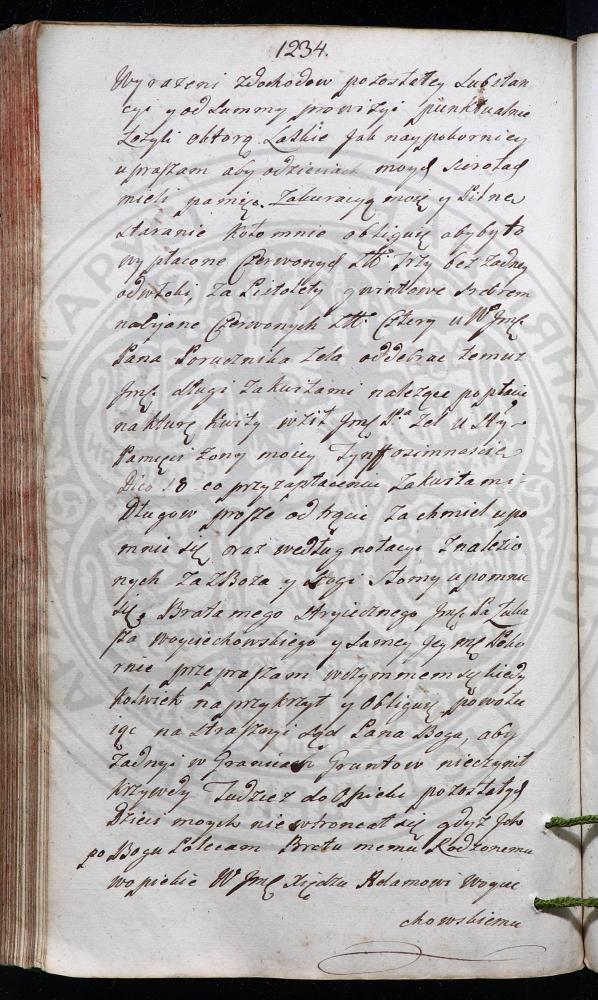 1234.
Wyrażeni zdochodow pozostałey Substan
cyi y od Summy prowizyi punktualnie
Łożyli oktorą Łaskie Jak naypokorniey
upraszam aby odzieciach moych sierotach
mieli pamięć. Zakuracyą moię y Pilne
staranie koło mnie obliguię abyby to
wypłacone Czerwonych Złł. Trzy bez żadney
odwłoki, za Pistolety gwintowe srebrem
nabijane Czerwonych Złł. Cztery u WJmć
Pana Porucznika Zela oddebrac temuz
Jmć. długi zakwitami należące popłacić
na kturę kwity wził Jmć Pa. Zel u Sty.
Pamięci żony moiey Tynff osimnaście
Dico 18 co przyzapłaceniu zakwitami
Długow proszę odtrącic za chmiel upo
mnie się oraz według notacyi znalezio
nych za Zboża y stogi słomy upomnie
się, Brata mego stryiecznego Jmć Pa Łuka
sza woyciechowskiego y samey Jey mć Poko
rnie przepraszam wczymmem się kiedy
kolwiek naprzykrzył y Obliguię powołu
iąc na straszny sąd Pana Boga, aby
żadnyi w Granicach Gruntow nieczynił
krzywdy Tudziez do Opieki pozostałych
Dzieci moych niewtroncał się gdyż Jch
po Bogu Polecam Bratu memu Rodzonemu
wopiekie WJmć Xiędzu Adamowi woycie
chowskiemu